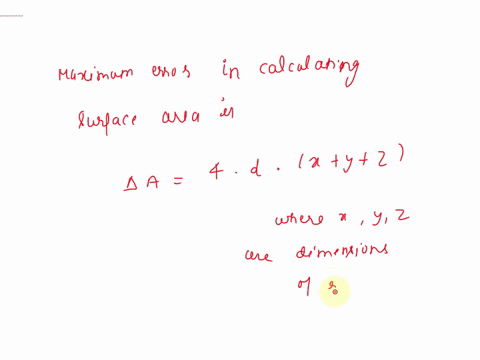 Maximum error in calculating
surface area is
Δ A = 4 . d . (x + y + z)
where x, y, z
are dimensions
of